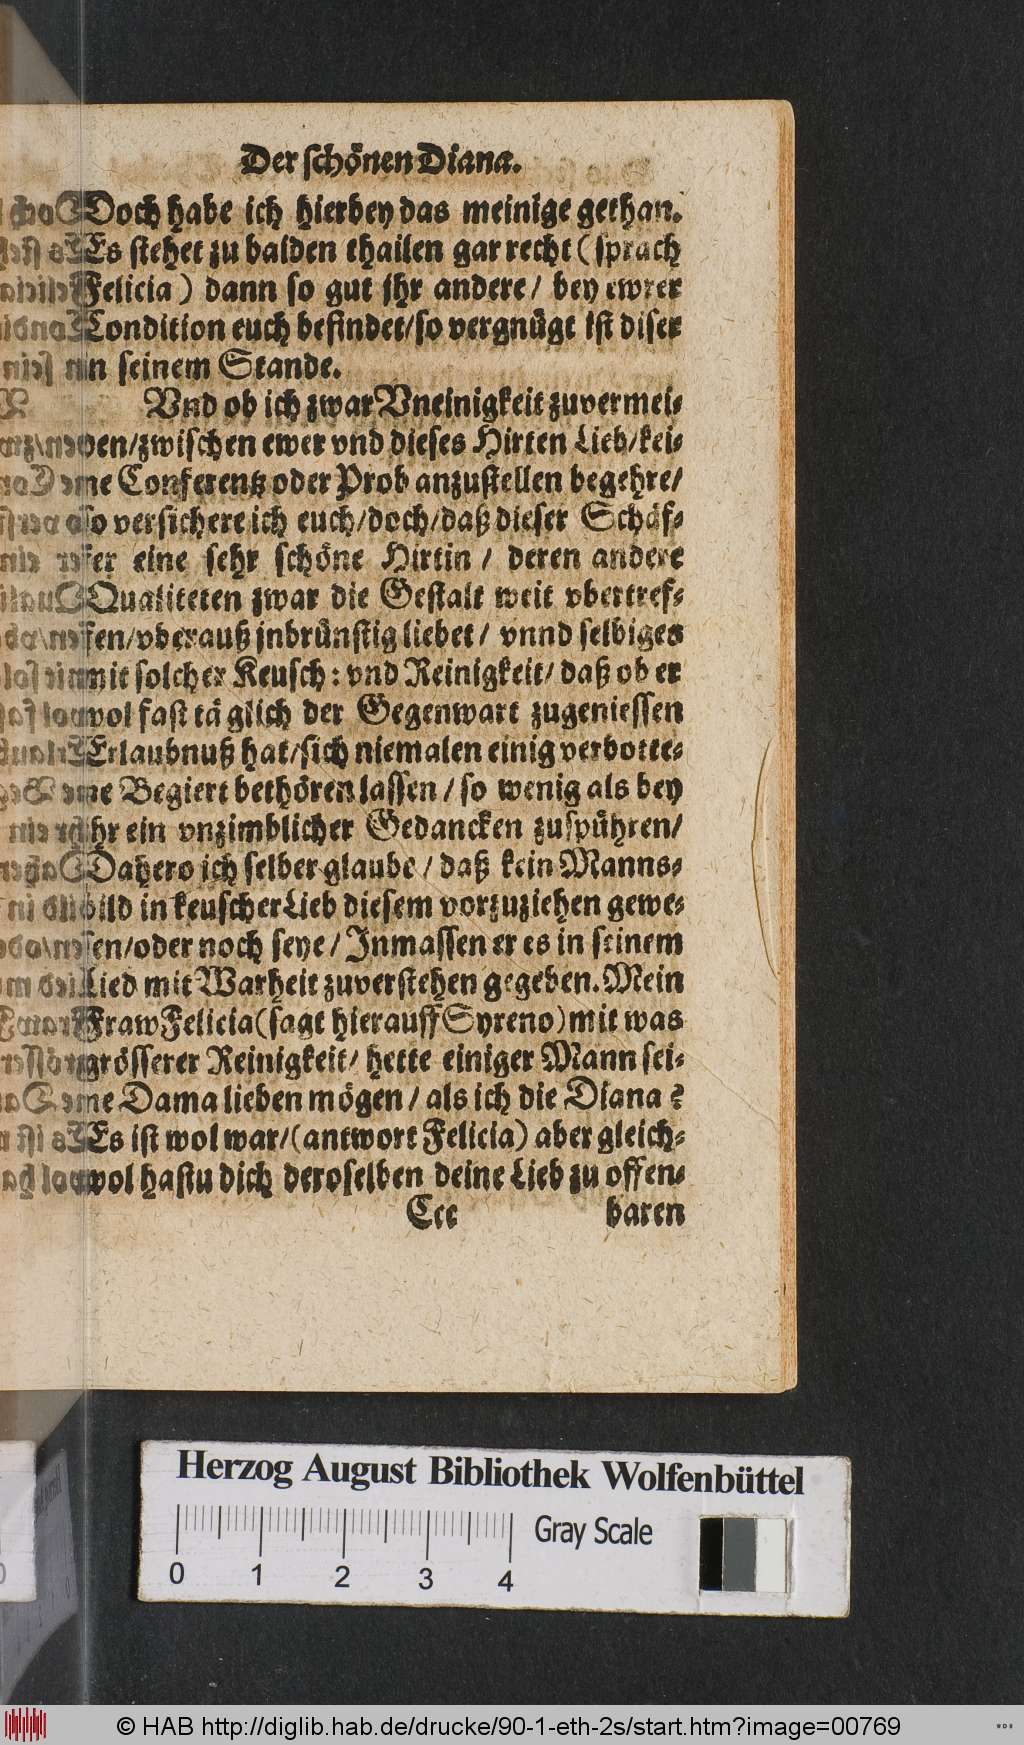 Der schönen Diana.
Doch habe ich hierbey das meinige gethan.
Es stehet zu balden thailen gar recht (sprach
Felicia) dann so gut jhr andere / bey ewrer
Condition euch befindet/so vergnügt ist diser
in seinem Stande.
Vnd ob ich zwar Vneinigkeit zuvermei-
den/zwischen ewer vnd dieses Hirten Lieb/kei-
ne Conferentz oder Prob anzustellen begehre/
so versichere ich euch/doch/daß dieser Schäf-
fer eine sehr schöne Hirtin / deren andere
Qualiteten zwar die Gestalt weit vbertref-
fen/vberauß jnbrünstig liebet / vnnd selbiges
mit solcher Keusch: vnd Reinigkeit/ daß ob er
wol fast täglich der Gegenwart zugeniessen
Erlaubnuß hat/sich niemalen einig verbotte-
ne Begiert bethören lassen / so wenig als bey
jhr ein vnzimblicher Gedancken zuspühren/
Dahero ich selber glaube / daß kein Manns-
bild in keuscher Lieb diesem vorzuziehen gewe-
sen/oder noch seye / Inmassen er es in seinem
Lied mit Warheit zuverstehen gegeben. Mein
Fraw Felicia (sagt hierauff Syreno) mit was
grösserer Reinigkeit/ hette einiger Mann sei-
ne Dama lieben mögen / als ich die Diana?
Es ist wol war/(antwort Felicia) aber gleich-
wol hastu dich deroselben deine Lieb zu offen-
Ccc baren
Herzog August Bibliothek Wolfenbüttel
Gray Scale
0 1 2 3 4
© HAB http://diglib.hab.de/drucke/90-1-eth-2s/start.htm?image=00769